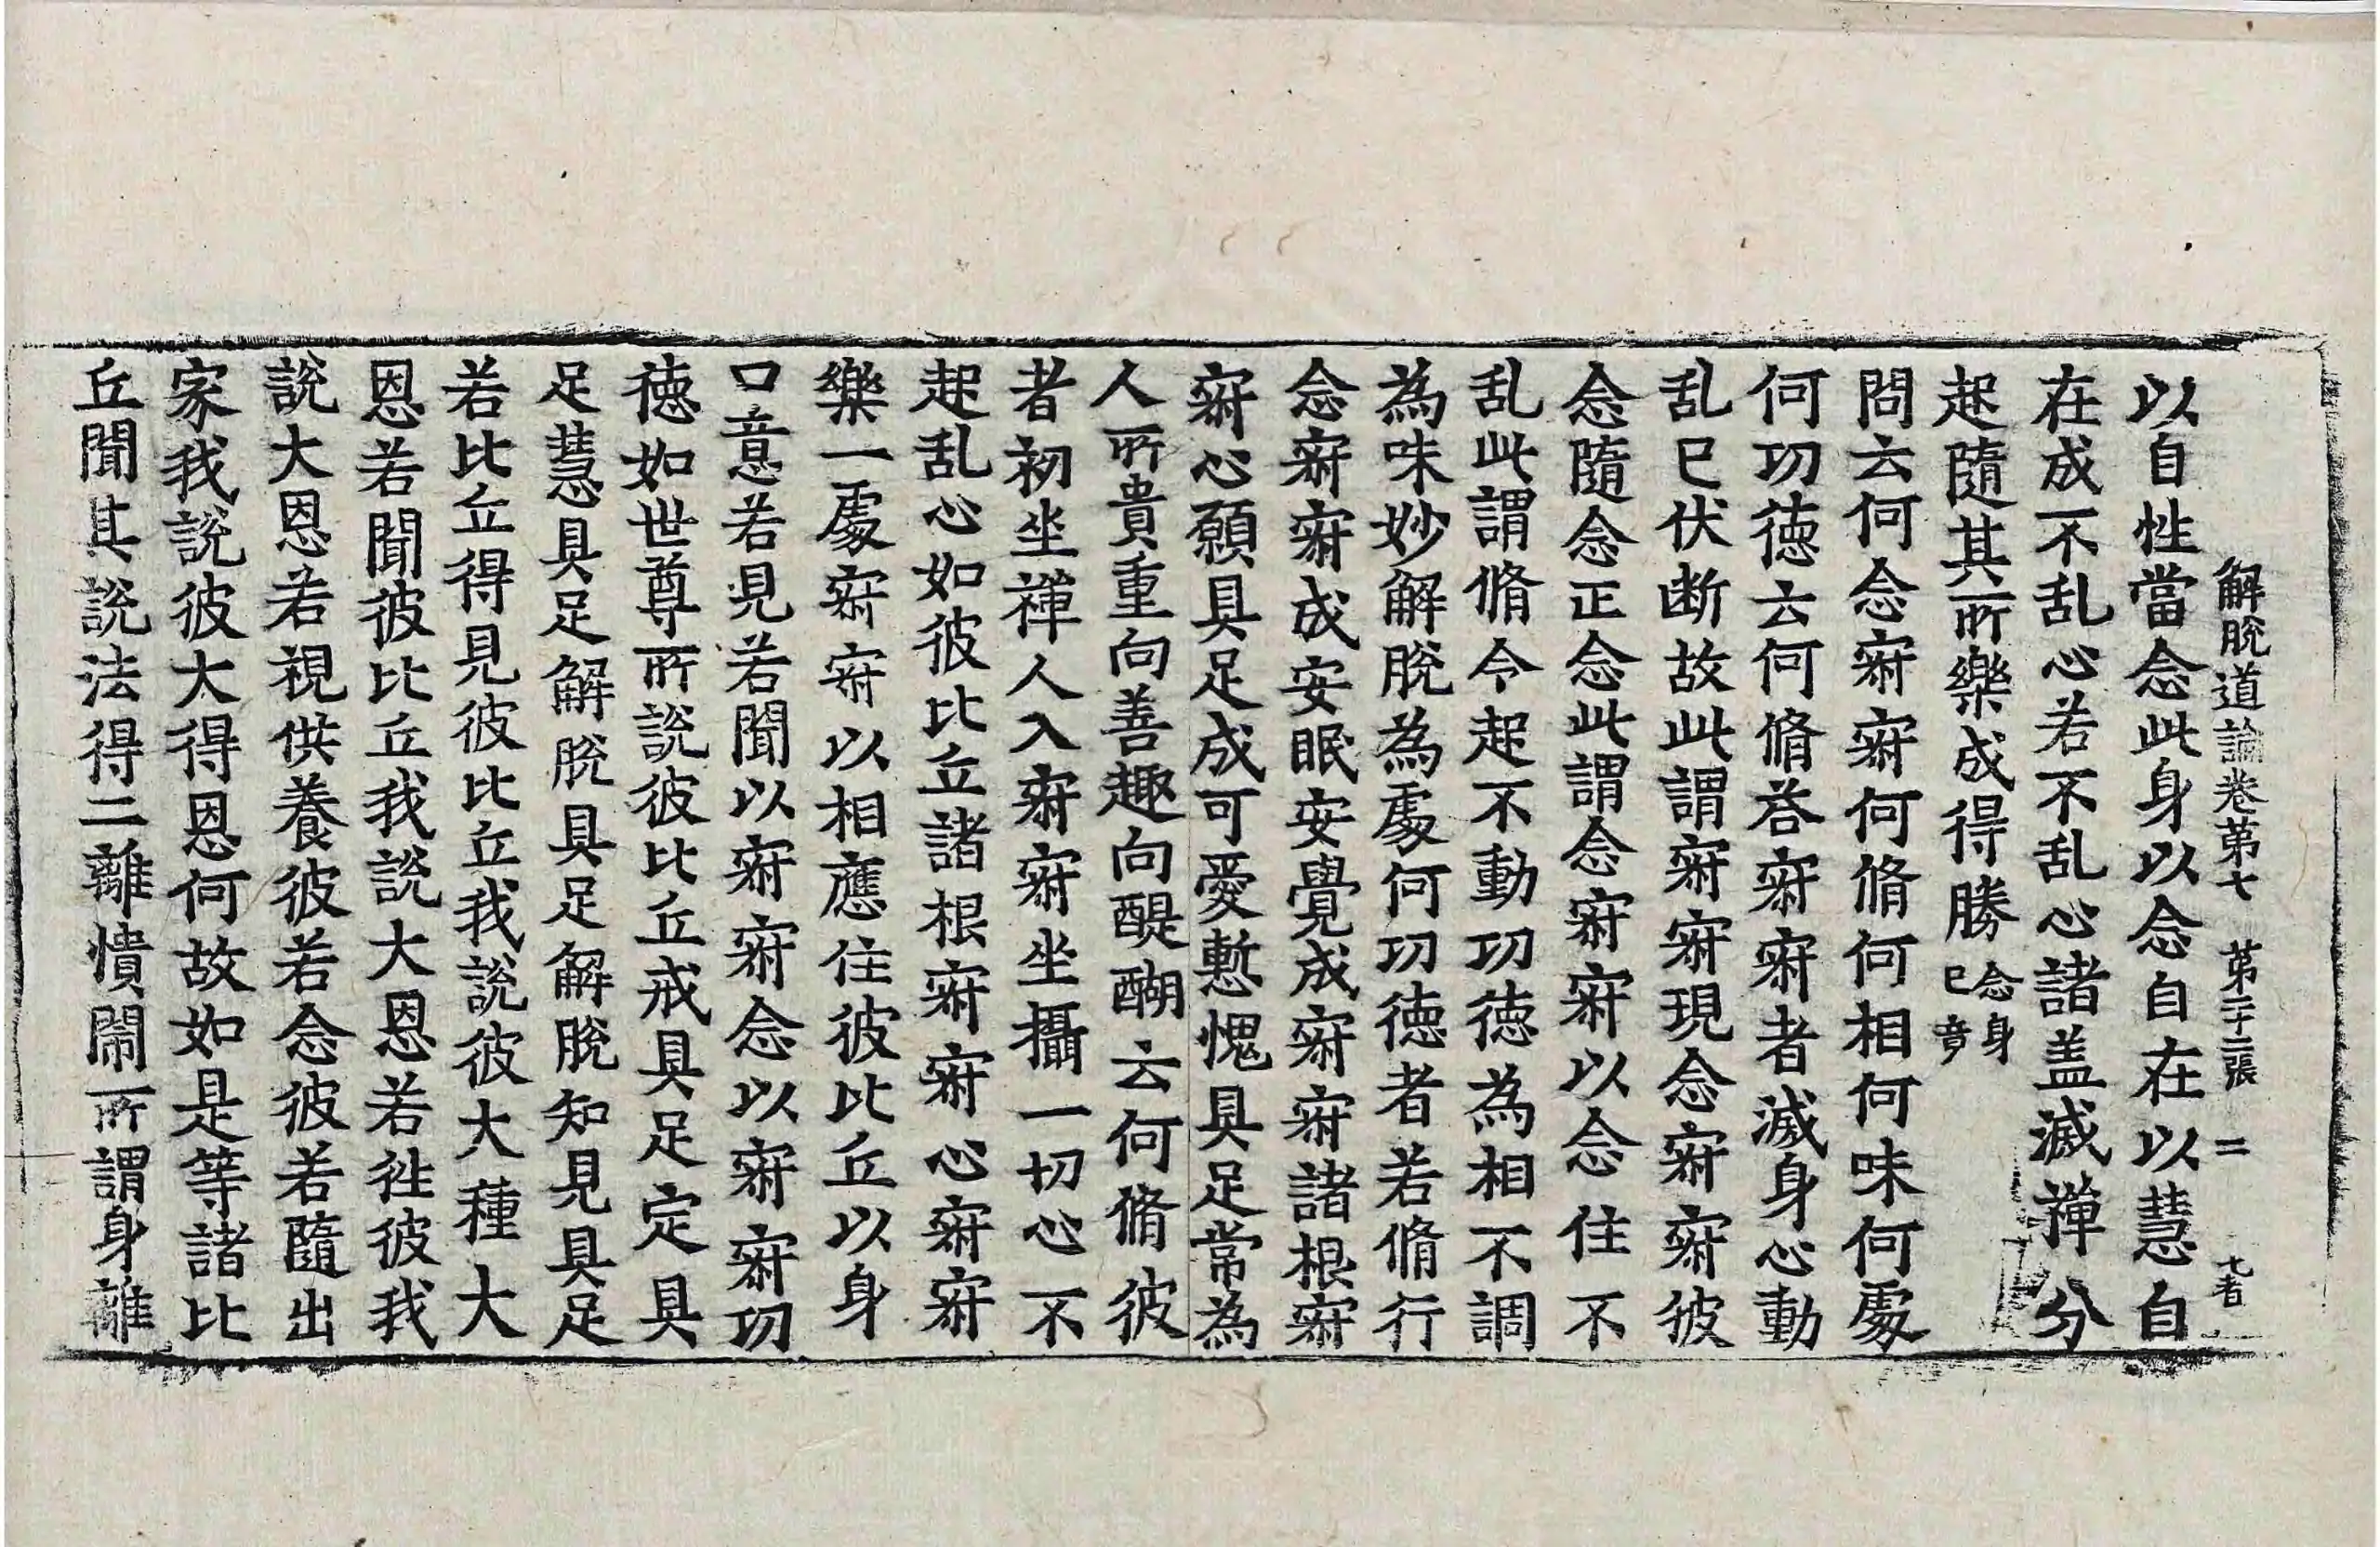 解脫道論卷第七 第二十二張 二
以自性當念此身以念自在以慧自
在成不乱心若不乱心諸盖滅禪分
起隨其所樂成得勝 念身已竟
問云何念寂寂何脩何相何味何處
何功徳云何脩荅寂寂者滅身心動
乱已伏断故此謂寂寂現念寂寂彼
念隨念正念此謂念寂寂以念住不
乱此謂脩令起不動功徳為相不調
為味妙解脫為處何功徳者若脩行
念寂寂成安眠安覺成寂寂諸根寂
寂心願具足成可愛慙愧具足常為
人所貴重向善趣向醍醐云何脩彼
者初坐禪人入寂寂坐攝一切心不
起乱心如彼比丘諸根寂寂心寂寂
樂一處寂寂以相應住彼比丘以身
口意若見若聞以寂寂念以寂寂功
徳如世尊所說彼比丘戒具足定具
足慧具足解脫具足解脫知見具足
若比丘得見彼比丘我說彼大種大
恩若聞彼比丘我說大恩若徃彼我
說大恩若視供養彼若念彼若隨出
家我說彼大得恩何故如是等諸比
丘聞其說法得二離憒閙所謂身離